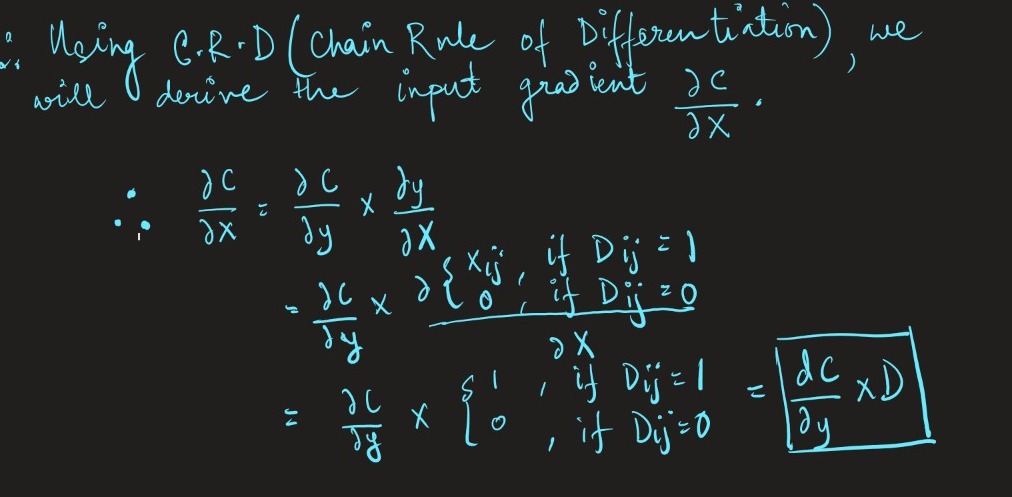 ∴ Using C.R.D (Chain Rule of Differentiation), we
will derive the input gradient ∂C/∂X.
∴ ∂C/∂X = ∂C/∂y × ∂y/∂X
= ∂C/∂y × ∂{xij, if Dij = 1; 0, if Dij = 0}/∂X
= ∂C/∂y × {1, if Dij = 1; 0, if Dij = 0} = dC/∂y × D